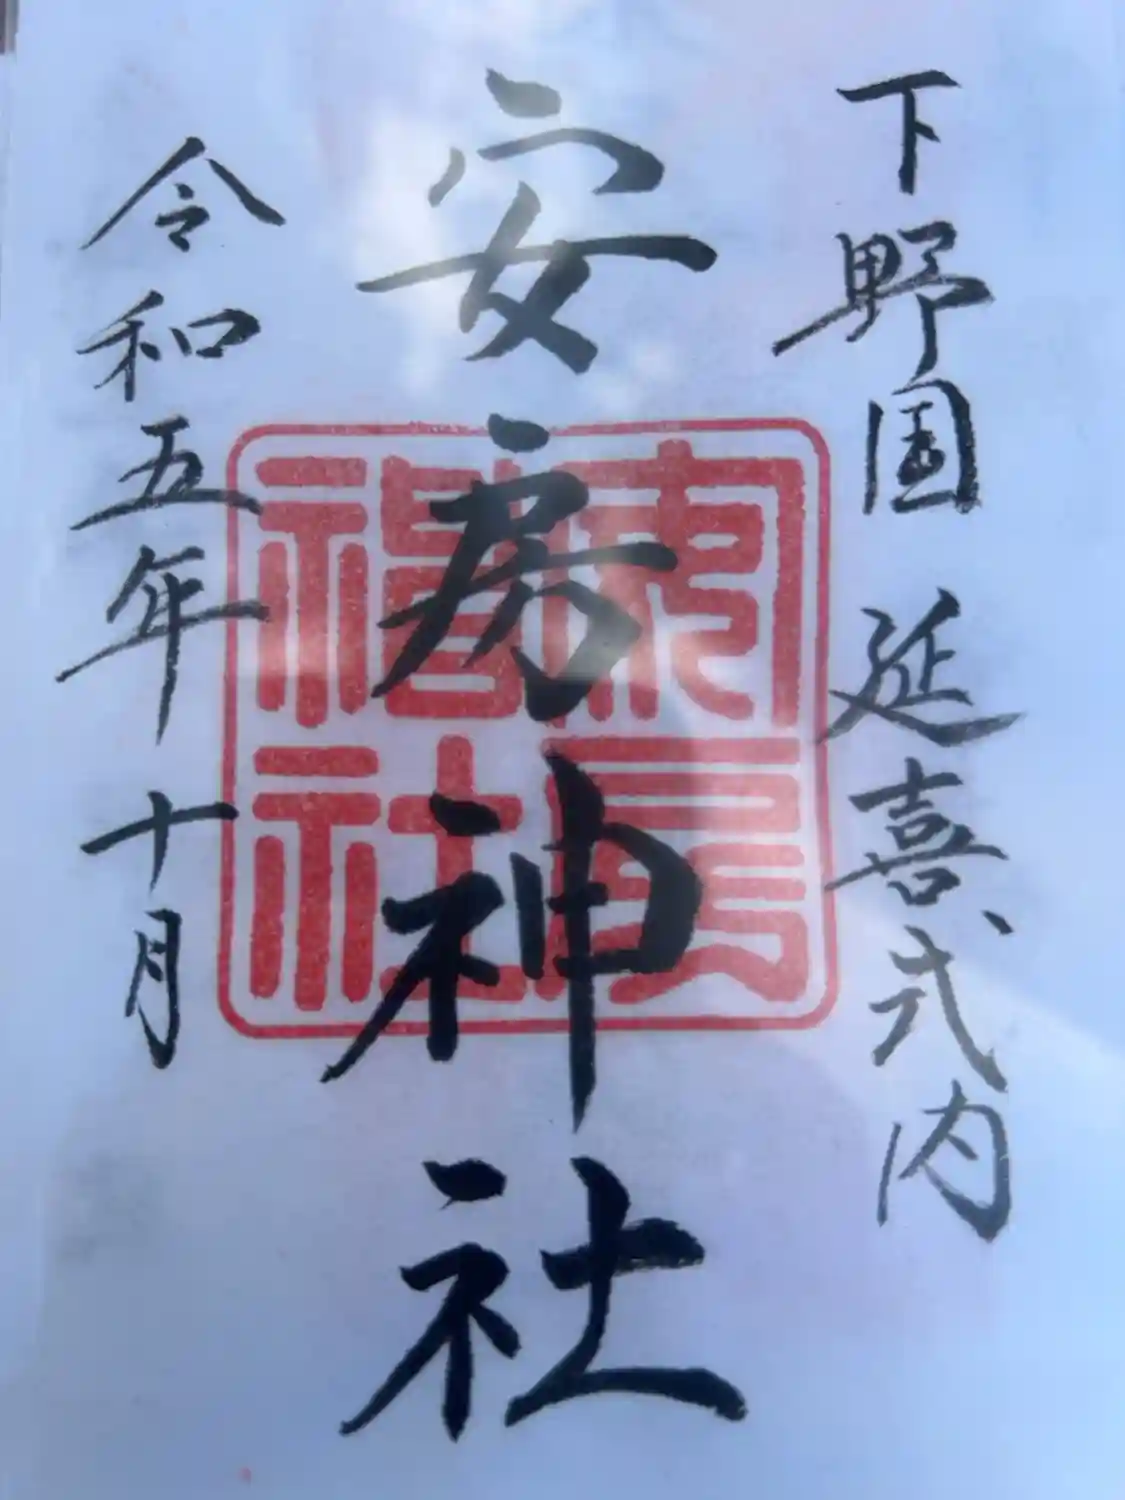 下野国 延喜式内
安房神社
令和五年十月